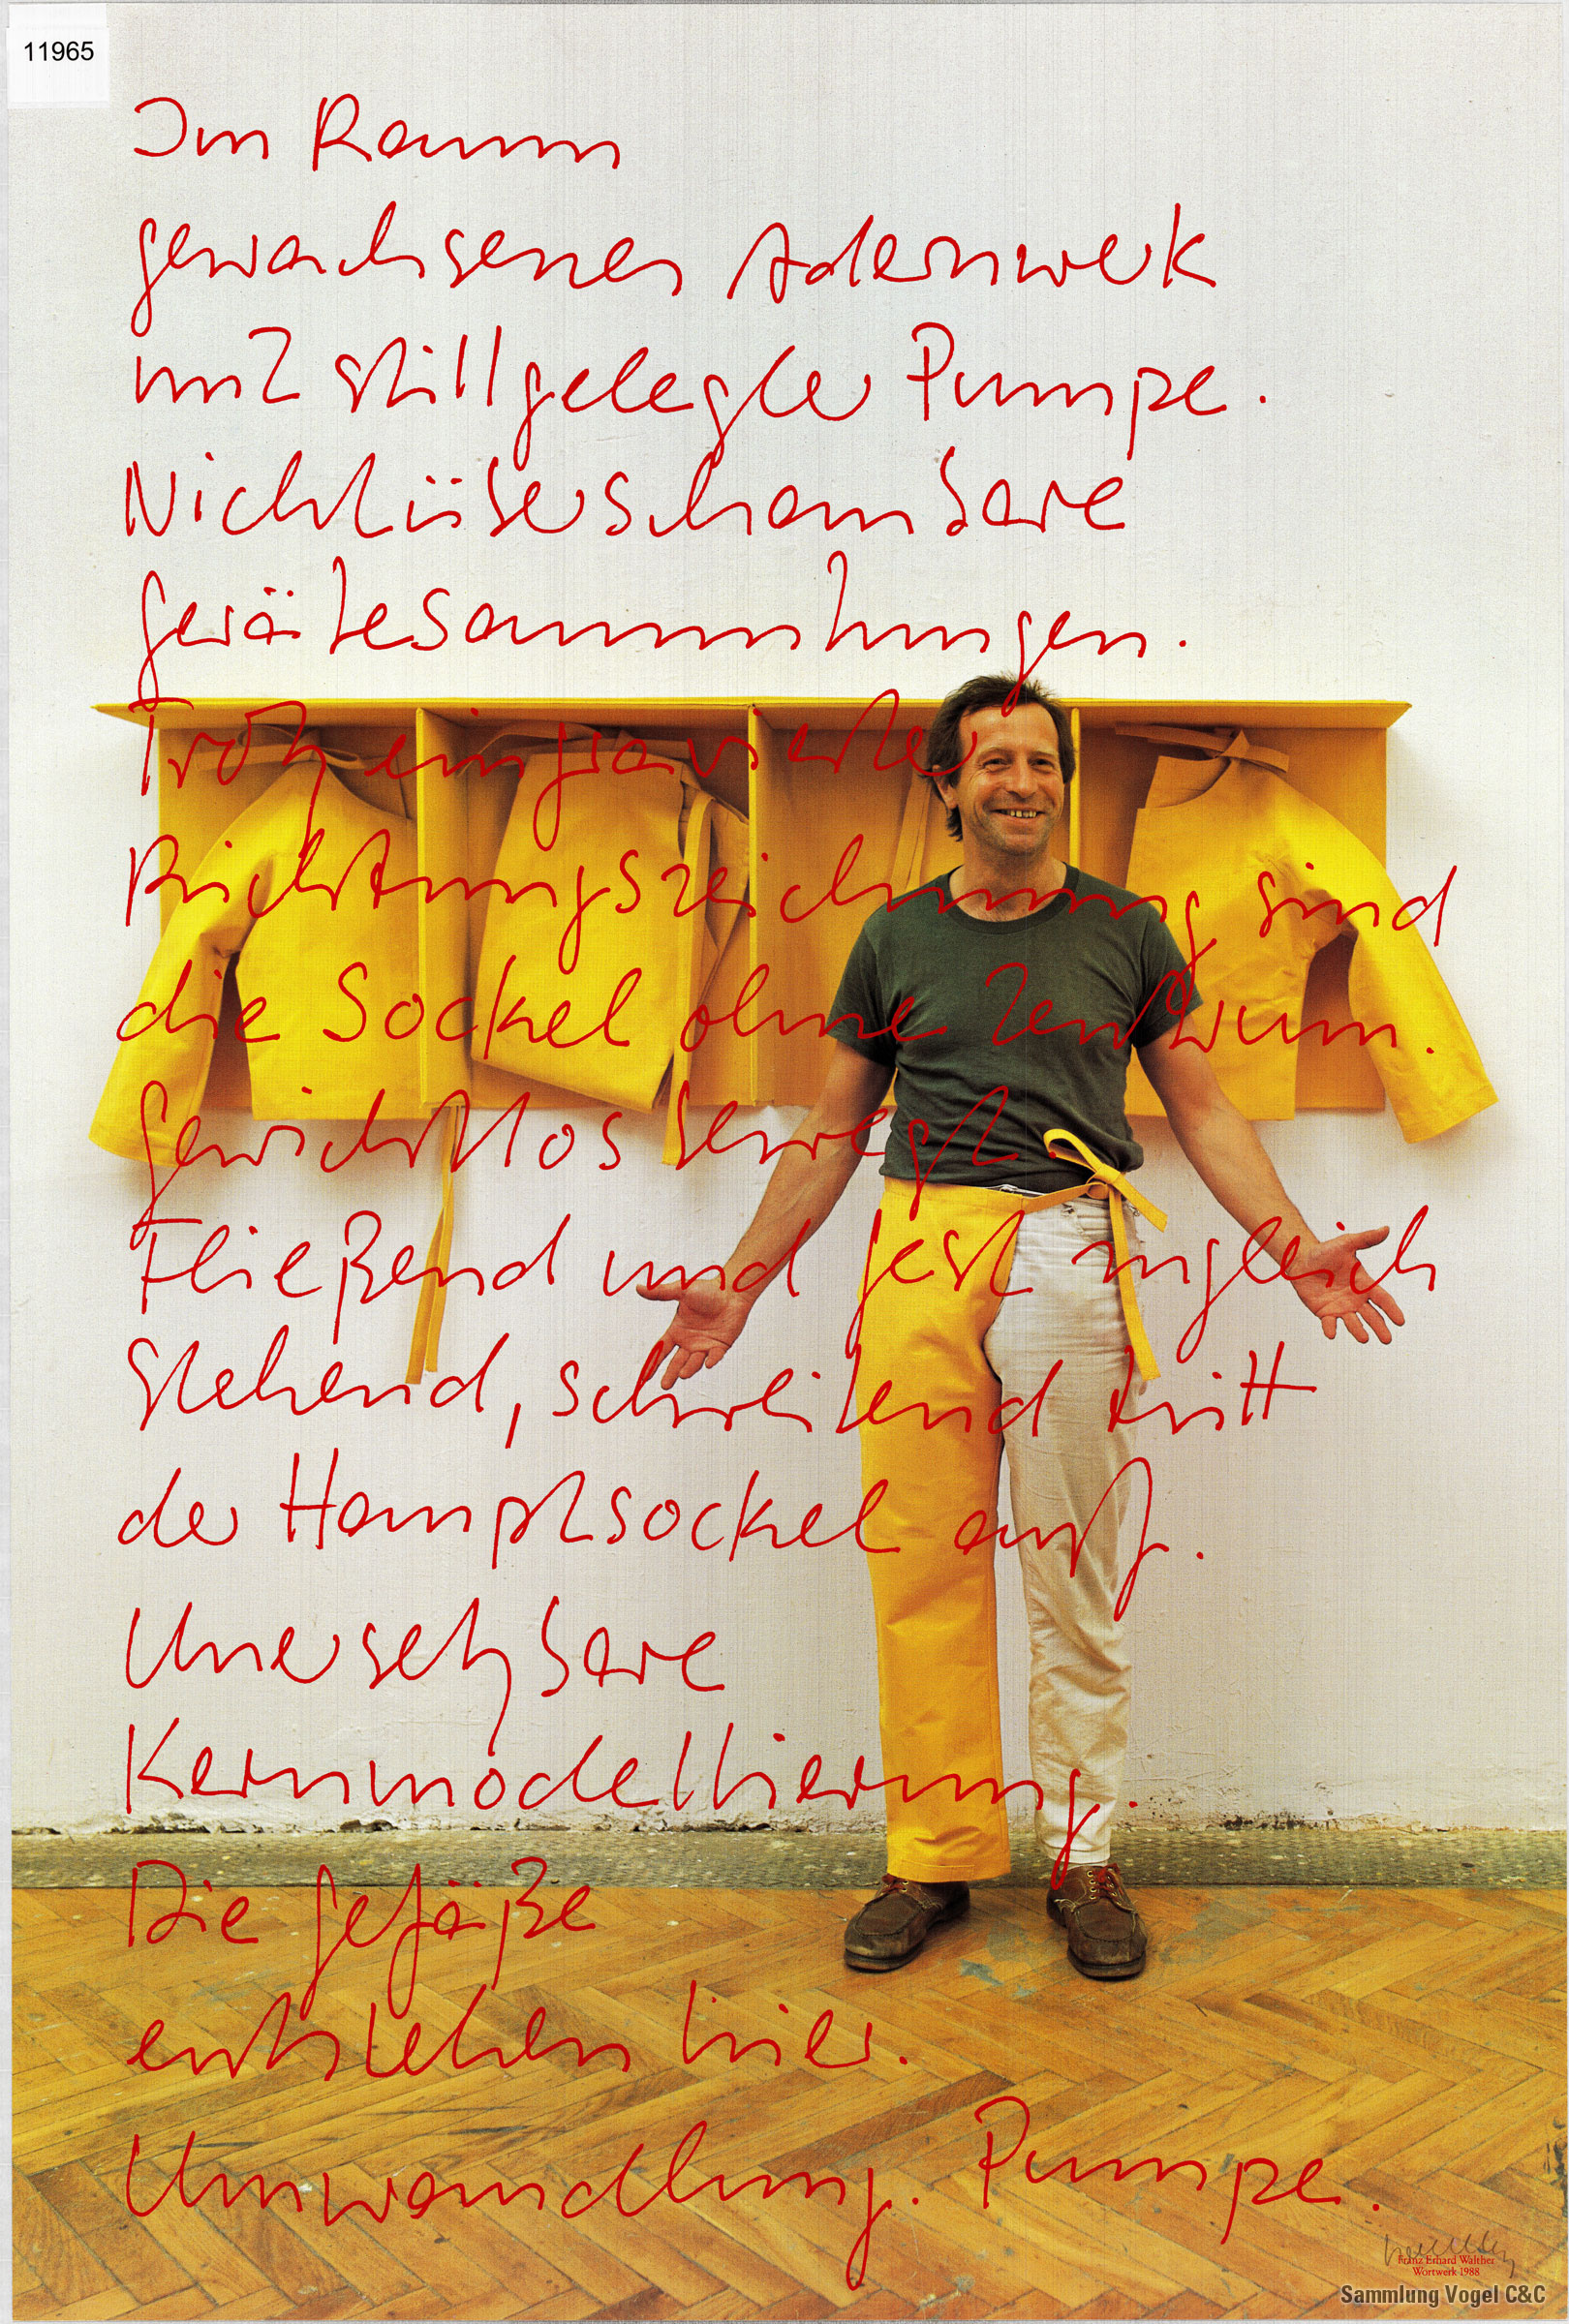 11965
Im Raum
gewachsenes Adernwerk
mit stillgelegter Pumpe.
Nichtüberschaubare
Gerätesammlungen.
Trotz eingravierter
Richtungszeichnung sind
die Sockel ohne Zentrum.
Gewichtlos bewegt.
Fließend und fest zugleich
stehend, schreitend tritt
der Hauptsockel auf.
Unersetzbare
Kernmodellierung.
Die Gefäße
entstehen hier.
Umwandlung. Pumpe.
Franz Erhard Walther
Wortwerk 1988
Sammlung Vogel C&C